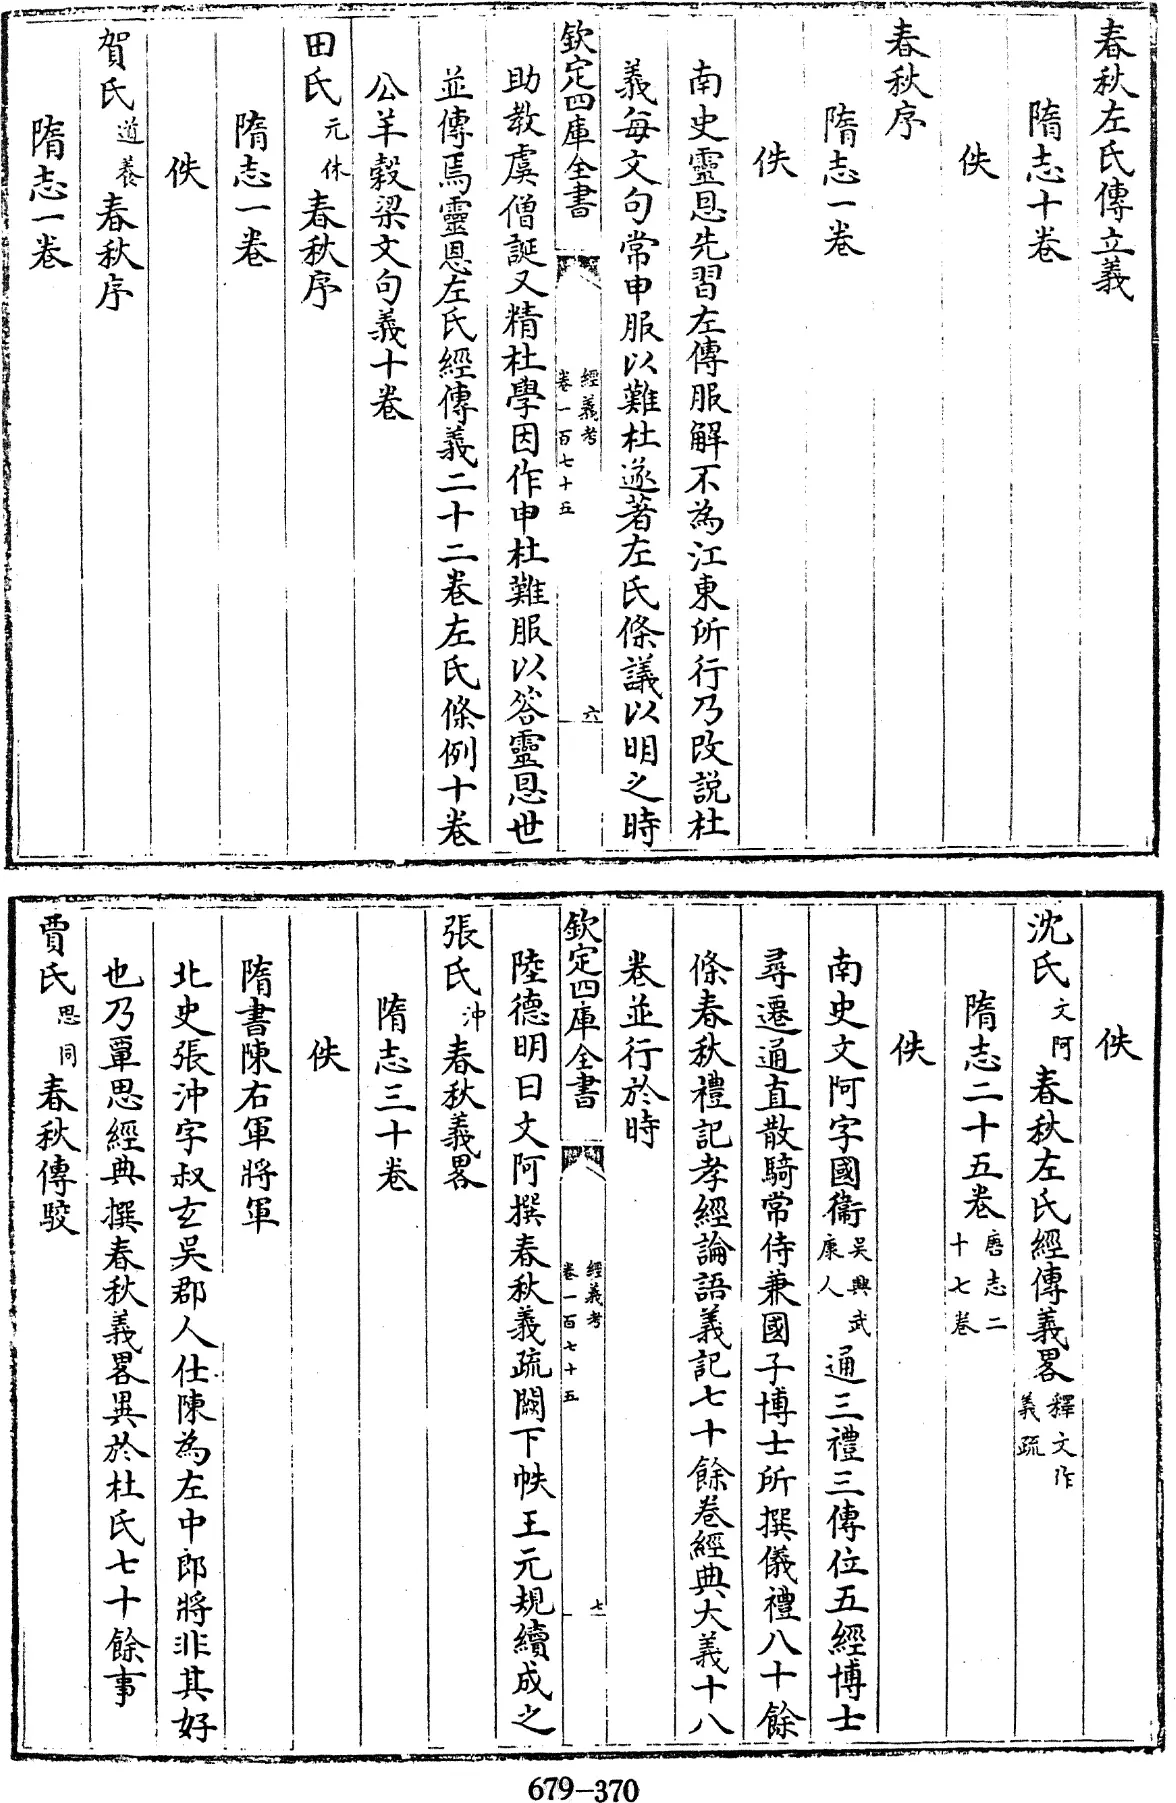 春秋左氏傳立義
隋志十卷
佚
春秋序
隋志一卷
佚
南史靈恩先習左傳服解不為江東所行乃改說杜
義每文句常申服以難杜遂著左氏條議以明之時
欽定四庫全書
經義考
卷一百七十五
六
助教虞僧誕又精杜學因作申杜難服以答靈恩世
並傳焉靈恩左氏經傳義二十二卷左氏條例十卷
公羊穀梁文句義十卷
田氏元休春秋序
隋志一卷
佚
賀氏道養春秋序
隋志一卷
佚
沈氏文阿春秋左氏經傳義畧釋文作義疏
隋志二十五卷唐志二十七卷
佚
南史文阿字國衞吳興武康人通三禮三傳位五經博士
尋遷通直散騎常侍兼國子博士所撰儀禮八十餘
條春秋禮記孝經論語義記七十餘卷經典大義十八
卷並行於時
欽定四庫全書
經義考
卷一百七十五
七
陸德明曰文阿撰春秋義疏闕下帙王元規續成之
張氏沖春秋義畧
隋志三十卷
佚
隋書陳右軍將軍
北史張沖字叔玄吳郡人仕陳為左中郎將非其好
也乃覃思經典撰春秋義畧異於杜氏七十餘事
賈氏思同春秋傳駮
679-370